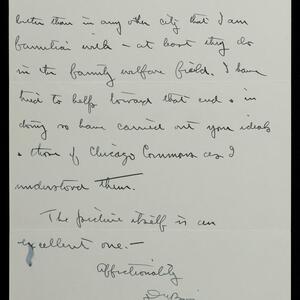 better than in any other city that I am
familiar with - at least they do
in the family welfare field. I have
tried to help toward that end & in
doing so have carried out your ideals
& those of Chicago Commons as I
understood them.
The picture itself is an
excellent one.-
Affectionately